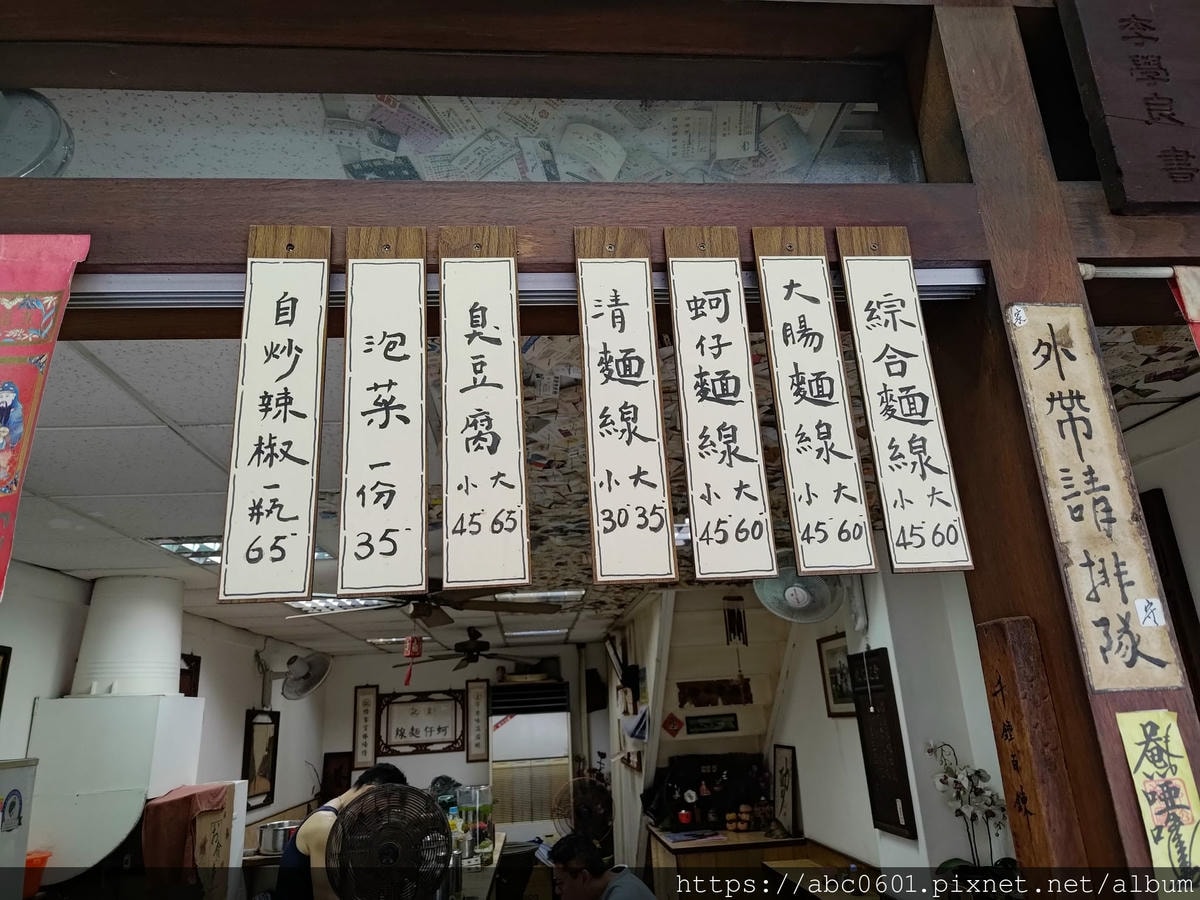 李學良
書
綜合麵線
小 大
45 60
大腸麵線
小 大
45 60
蚵仔麵線
小 大
45 60
清麵線
小 大
30 35
臭豆腐
小 大
45 65
泡菜
一份
35
自炒辣椒
一瓶
65
外帶請排隊
蚵仔麵線
https://abc0601.pixnet.net/album